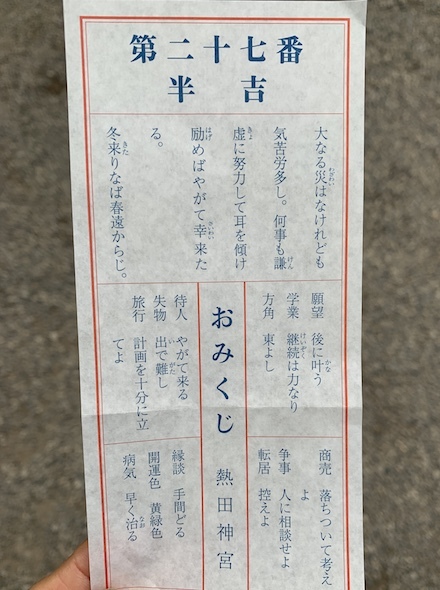 第二十七番
半 吉
大なる災はなけれども
気苦労多し。何事も謙
虚に努力して耳を傾け
励めばやがて幸来た
る。
冬来りなば春遠からじ。
願望 後に叶う
学業 継続は力なり
方角 東よし
商売 落ちついて考え
よ
争事 人に相談せよ
転居 控えよ
おみくじ 熱田神宮
待人 やがて来る
失物 出で難し
旅行 計画を十分に立
てよ
縁談 手間どる
開運色 黄緑色
病気 早く治る